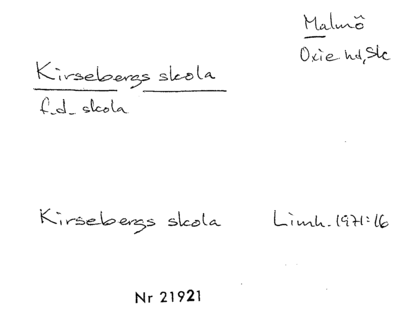 Malmö
Oxie hd, Sk
Kirsebergs skola
f.d. skola
Kirsebergs skola Limh. 1971:16
Nr 21921